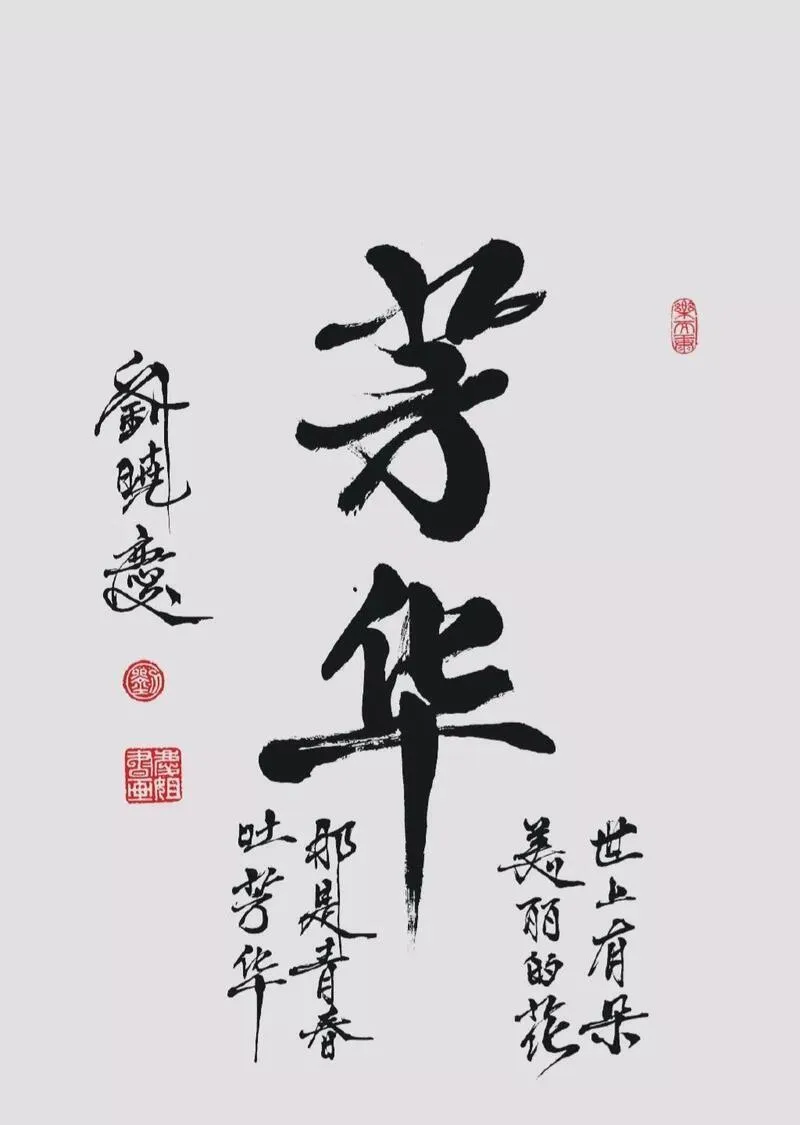 芳华
世上有朵
美丽的花
那是青春
吐芳华
劉曉慶
劉
慶姐
書画